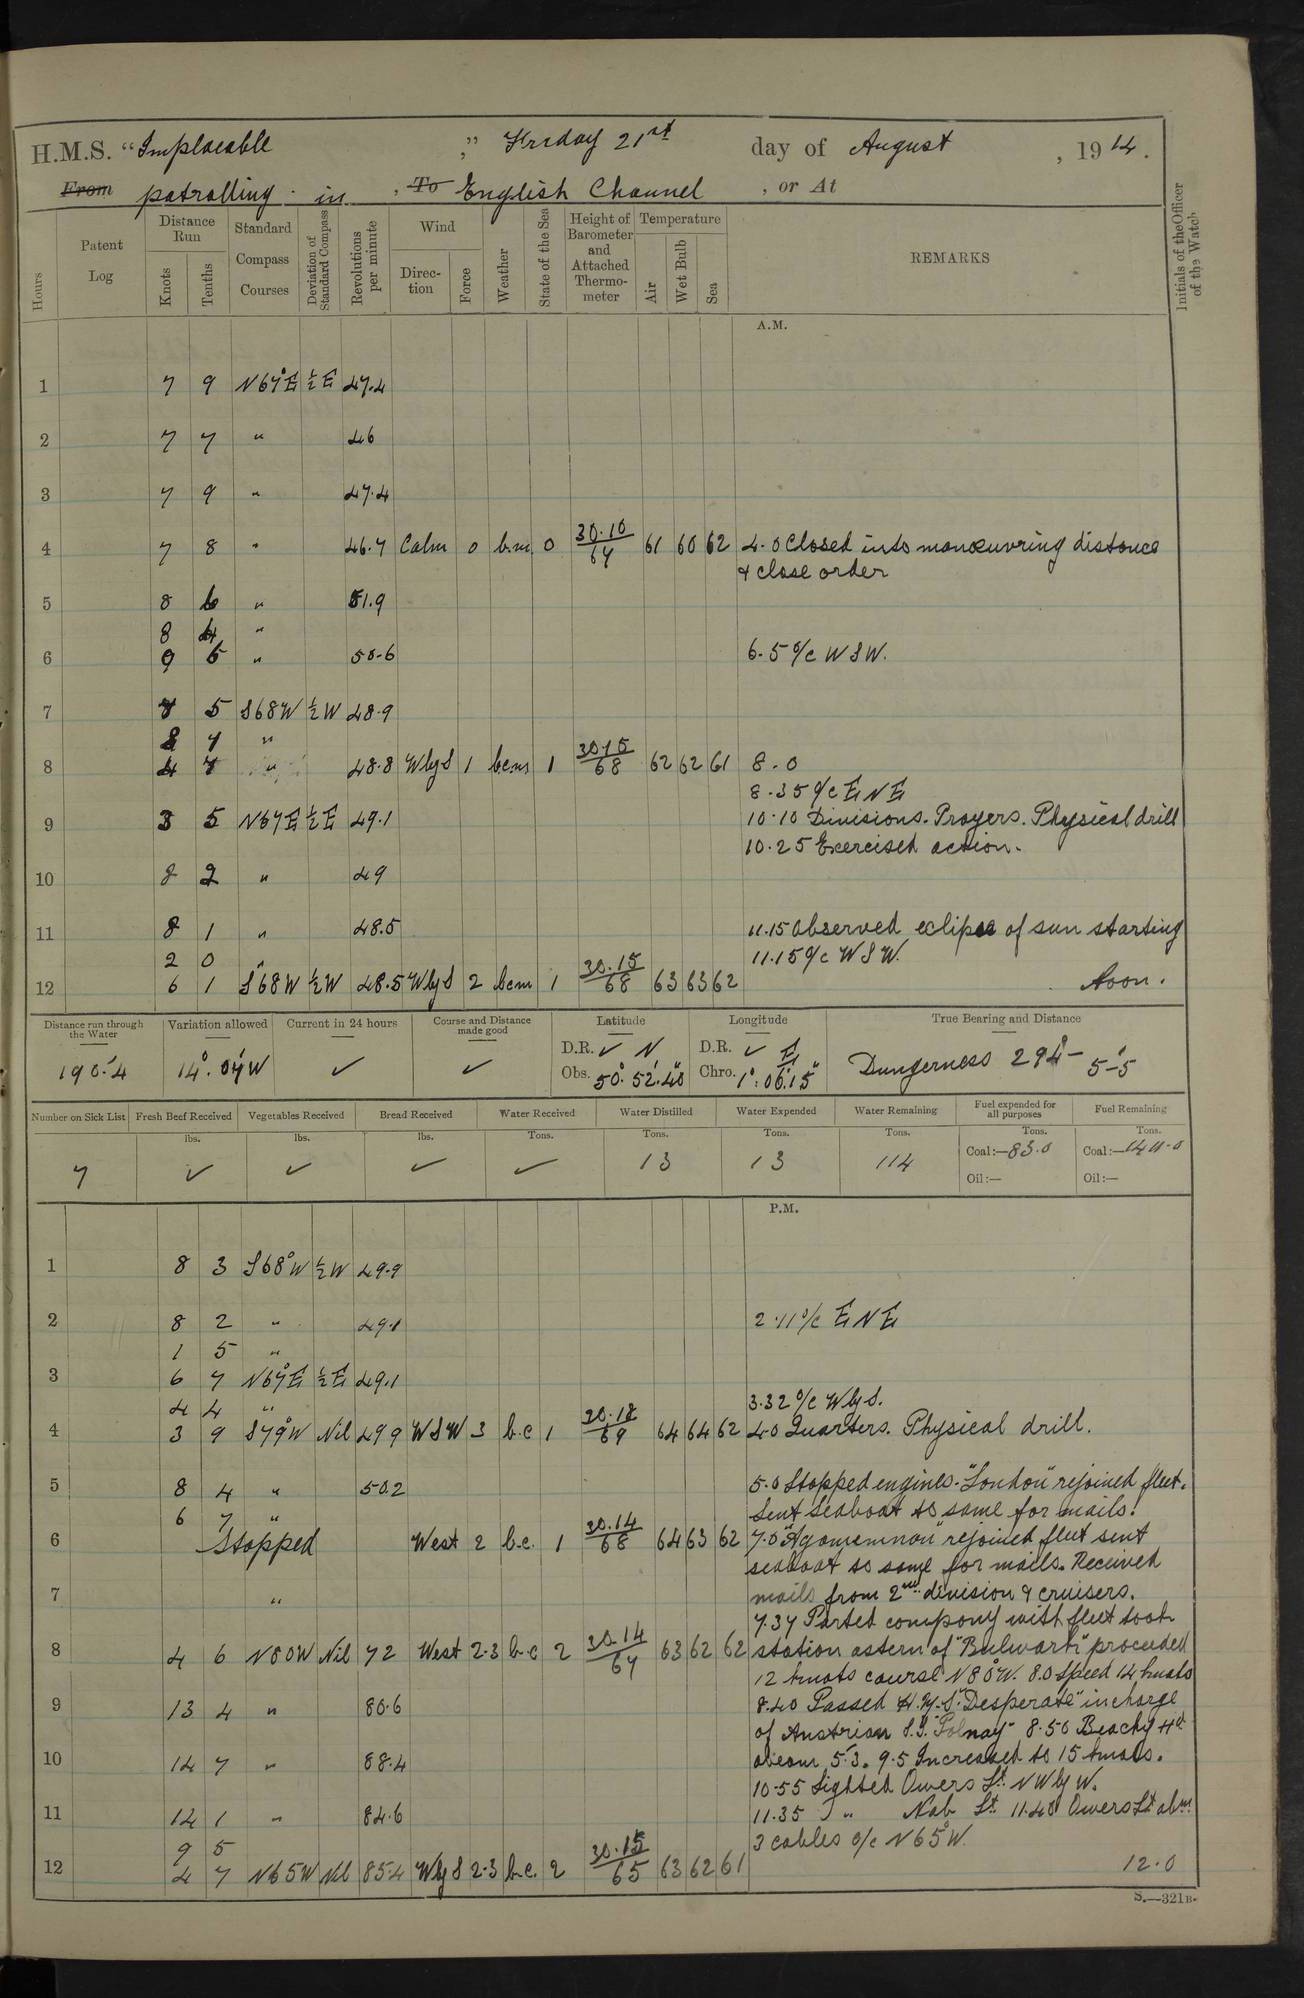 H.M.S. "Implacable," Friday 21st day of August, 1914.
From patrolling in, To English Channel, or At
Hours
Patent Log
Distance Run
Knots
Tenths
Standard Compass Courses
Deviation of Standard Compass
Revolutions per minute
Wind
Direction
Force
Weather
State of the Sea
Height of Barometer and Attached Thermometer
Temperature
Air
Wet Bulb
Sea
REMARKS
Initials of the Officer of the Watch
A.M.
1 7 9 N67°E ½E 47.4
2 7 7 " 46
3 7 9 " 47.4
4 7 8 " 46.7 Calm 0 b.m. 0 30.10/64 61 60 62 4.0 Closed into manœuvring distance
& close order
5 8 6 " 51.9
8 4 "
6 0 5 " 50.6 6.5 a/c WSW.
7 7 5 S68W ½W 48.9
8 7 "
8 48.8 WbyS 1 bcm 1 30.15/68 62 62 61 8.0
8.35 a/c ENE
9 3 5 N67E ½E 49.1 10.10 Divisions. Prayers. Physical drill
10.25 Exercised action.
10 8 2 " 49
11 8 1 " 48.5 11.15 observed eclipse of sun starting
2 0 " 11.15 a/c WSW.
12 6 1 S68W ½W 48.5 WbyS 2 bcm 1 30.15/68 63 63 62 Noon.
Distance run through the Water
190.4
Variation allowed
14°.04'W
Current in 24 hours
✓
Course and Distance made good
✓
Latitude
D.R. ✓ N
Obs. 50°.52'.40"
Longitude
D.R. ✓ E
Chro. 1°:06'.15"
True Bearing and Distance
Dungerness 294° - 5'.5
Number on Sick List
7
Fresh Beef Received
lbs.
✓
Vegetables Received
lbs.
✓
Bread Received
lbs.
✓
Water Received
Tons.
✓
Water Distilled
Tons.
13
Water Expended
Tons.
13
Water Remaining
Tons.
114
Fuel expended for all purposes
Tons.
Coal:—83.0
Oil:—
Fuel Remaining
Tons.
Coal:—1411.0
Oil:—
P.M.
1 8 3 S68°W ½W 49.9
2 8 2 " 49.1 2.11 a/c ENE
1 5 "
3 6 7 N67°E ½E 49.1
4 4 " 3.32 a/c WbyS.
4 3 9 S79°W Nil 49 9 WSW 3 b.c 1 30.18/69 64 64 62 4.0 Quarters. Physical drill.
5 8 4 " 50.2 5.0 Stopped engines. "London" rejoined fleet.
6 7 " Sent seaboat to same for mails.
6 Stopped West 2 b.c. 1 30.14/68 64 63 62 7.0 "Agamemnon" rejoined fleet sent
seaboat to same for mails. Received
7 " mails from 2nd division & cruisers.
7.37 Parted company with fleet took
8 4 6 N80W Nil 72 West 2.3 b.c 2 30.14/67 63 62 62 station astern of "Bulwark" proceeded
12 knots course N80°W. 8.0 speed 14 knots
9 13 4 " 80.6 8.40 Passed H.M.S. "Desperate" in charge
of Austrian S.S. "Polnay" 8.50 Beachy Hd
10 14 7 " 88.4 abeam 5'.3. 9.5 Increased to 15 knots.
10.55 Sighted Owers Lt. NWbyW.
11 14 1 " 84.6 11.35 " Nab Lt. 11.40 Owers Lt. abm
9 5 3 cables a/c N65°W.
12 4 7 N65W Nil 85.4 WbyS 2.3 b.c. 2 30.15/65 63 62 61 12.0
S.—321B.